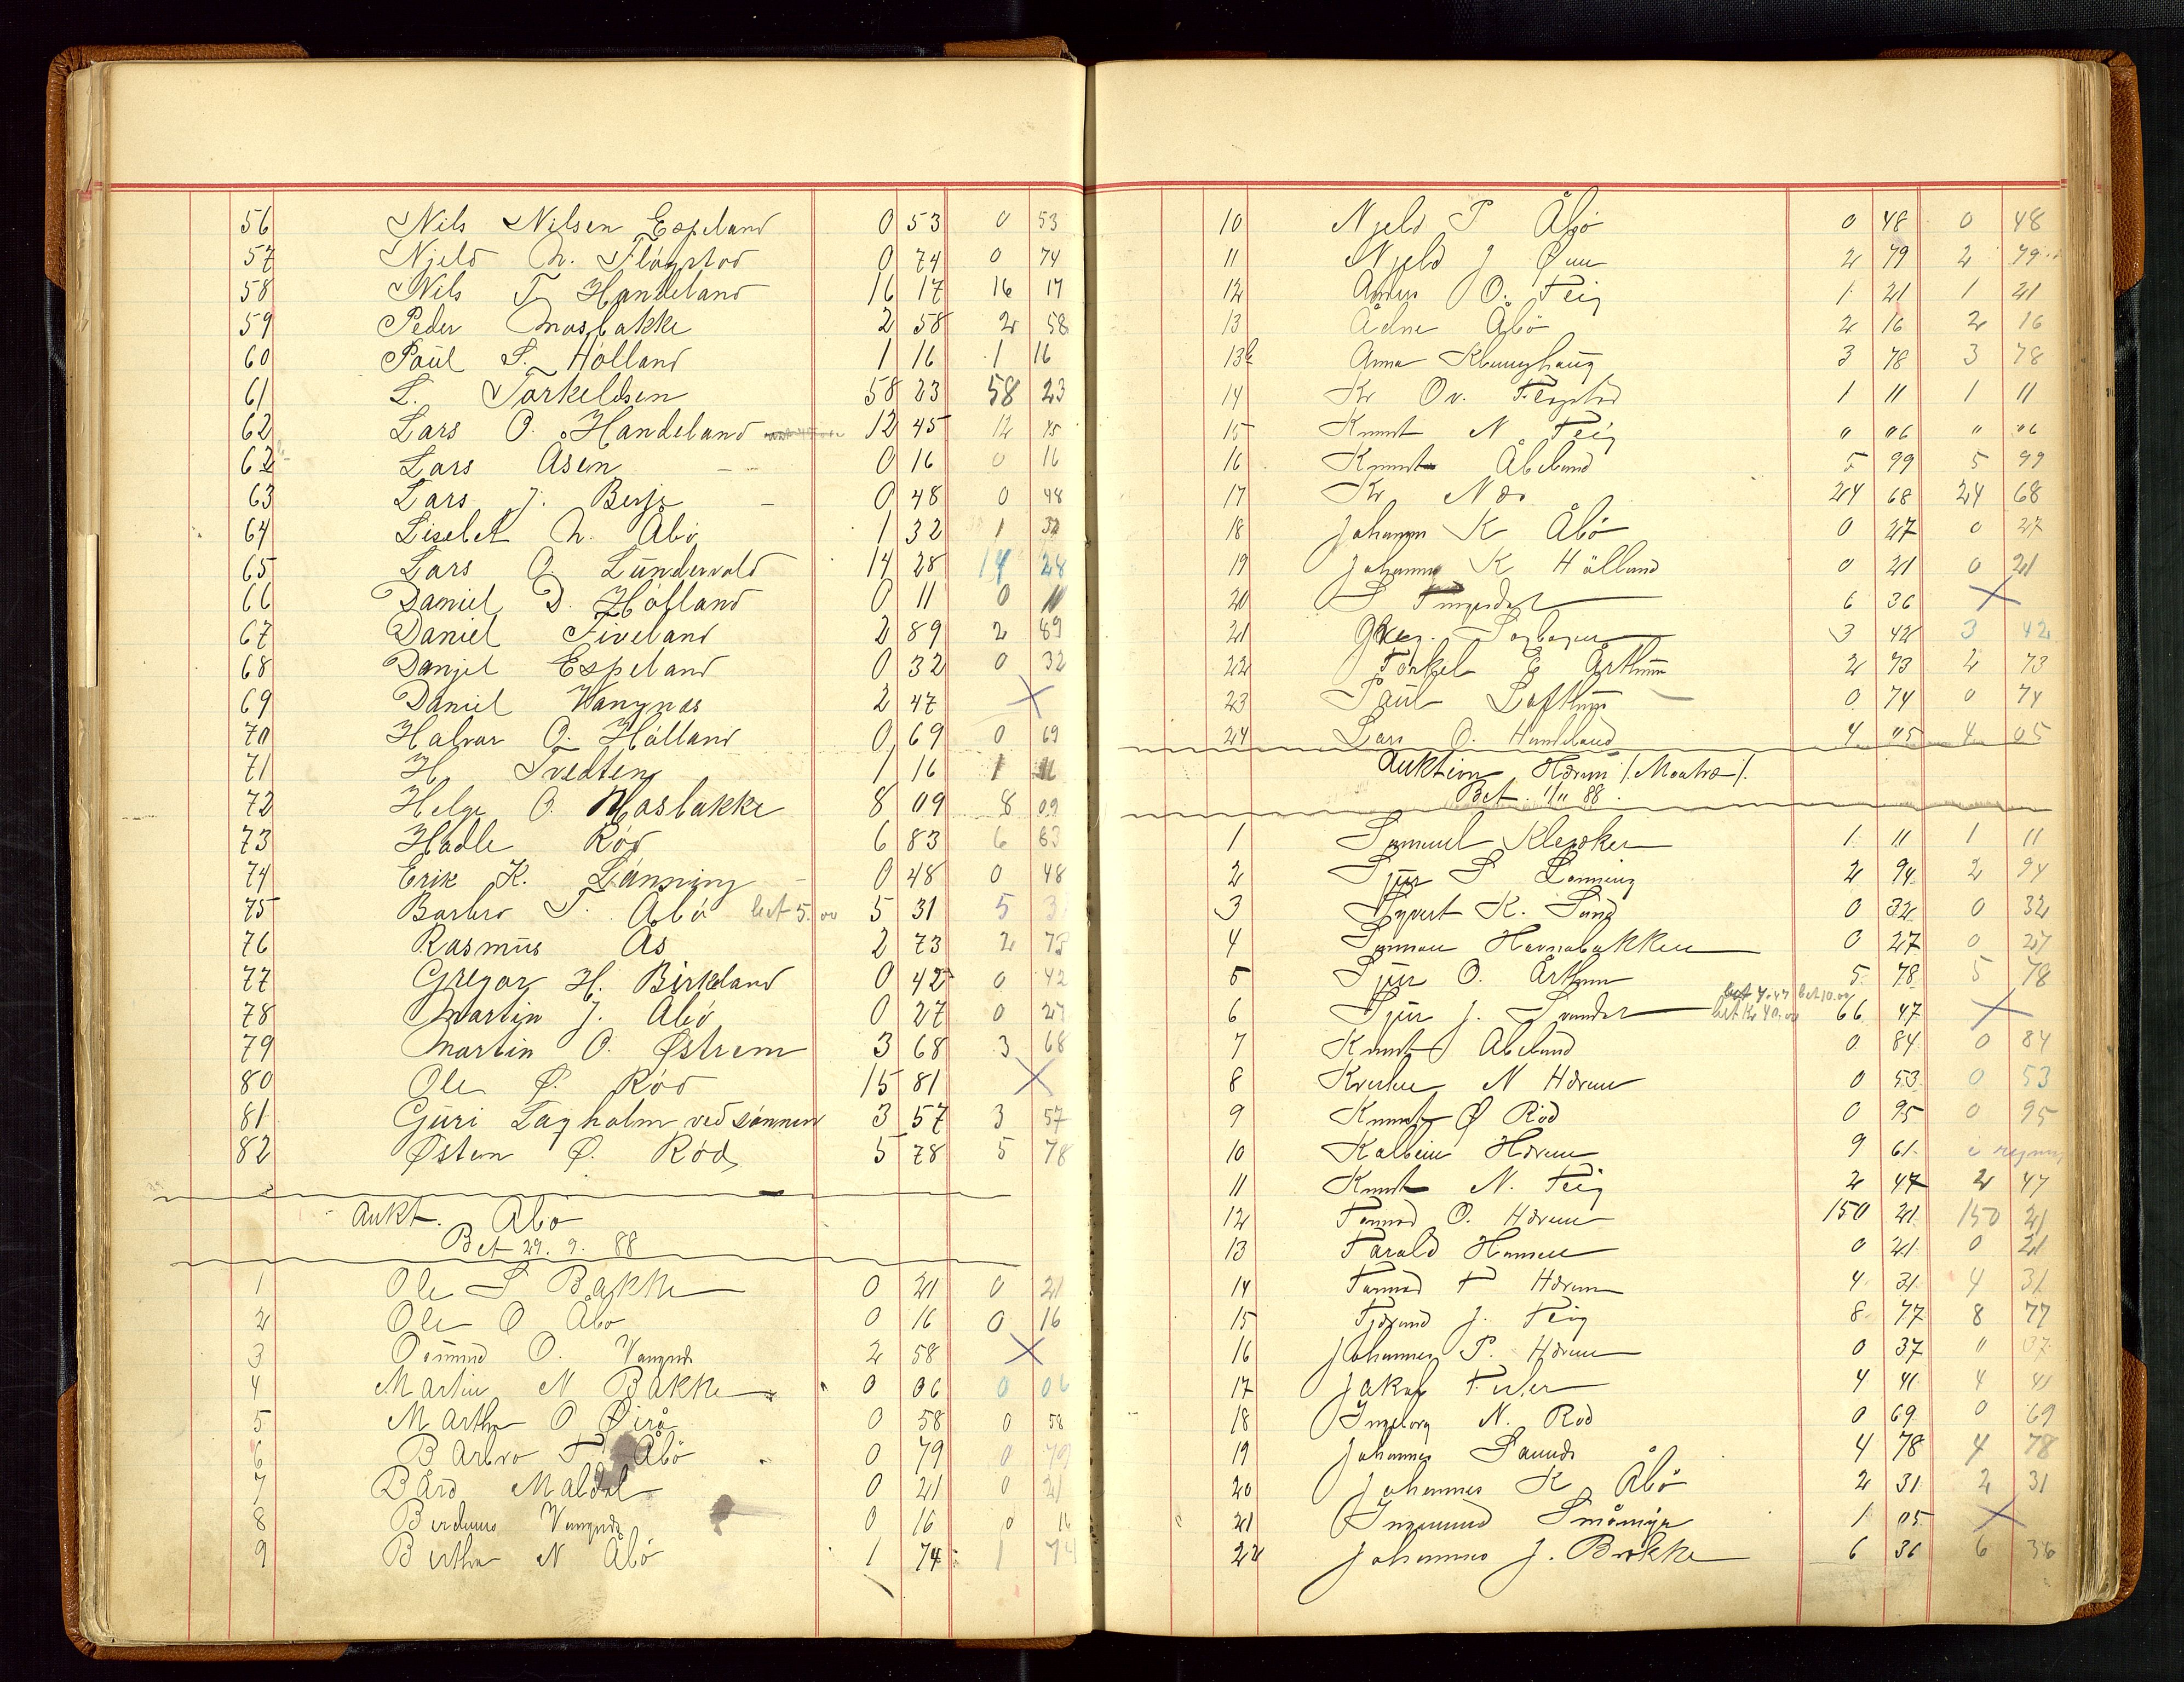 56 Nils Nilsen Espeland 0 53 0 53
57 Njeld N. Fløgstad 0 74 0 74
58 Nils T. Handeland 16 17 16 17
59 Peder Mosbakke 2 58 2 58
60 Paul S. Hólland 1 16 1 16
61 L. Torkeldsen 58 23 58 23
62 Lars O. Handeland 12 45 12 45
62 Lars Åsen 0 16 0 16
63 Lars J. Berje 0 48 0 48
64 Liselet N. Åbø 1 32 1 32
65 Lars O. Lündervold 14 28 14 28
66 Daniel D. Hólland 0 11 0 11
67 Daniel Fiveland 2 89 2 89
68 Danjel Espeland 0 32 0 32
69 Daniel Vangnæs 2 47 X
70 Halvar O. Hólland 0 69 0 69
71 H. Tvedten 1 16 1 16
72 Helge O. Mosbakke 8 09 8 09
73 Hadle Rød 6 83 6 83
74 Erik K. Lønning 0 48 0 48
75 Barbro T. Åbø bet 5.00 5 31 5 3
76 Rasmüs Ås 2 73 2 73
77 Gregar H. Birkeland 0 42 0 42
78 Martin J. Åbø 0 27 0 27
79 Martin O. Østrem 3 68 3 68
80 Ole Ø. Rød 15 81 X
81 Güri Lagholm ved sønnen 3 57 3 57
82 Østen Ø. Rød 5 78 5 78
Aukt. Åbø
Bet 29. 9. 88
1 Ole S Bakke 0 21 0 21
2 Ole O Åbø 0 16 0 16
3 Osmund O. Vangnæs 2 58 X
4 Martin N Bakke 0 06 0 06
5 Martha O Øirå 0 58 0 58
6 Barbro T Åbö 0 79 0 79
7 Bård Maldal 0 21 0 21
8 Vangnæs 0 16 0 16
9 Bertha N Åbö 1 74 1 74
10 Njeld P Åbö 0 48 0 48
11 Njeld J 2 79 2 79
12 Anders O. Teig 1 21 1 21
13 Ådne Åbö 2 16 2 16
13b Anna Klunghaug 3 78 3 78
14 Kr Ov. Flogstad 1 11 1 11
15 Knut N. Teig " 06 " 06
16 Knut Åbeland 5 99 5 99
17 Kr Næs 24 68 24 68
18 Johannes K Åbö 0 27 0 27
19 Johannes K Hölland 0 21 0 21
20 S 6 36 X
21 3 42 3 42
22 Torkel Årthun 2 73 2 73
23 Paul Lofthus 0 74 0 74
24 Lars O. Handeland 4 05 4 05
Auktion Hærem /. Moatræ /.
Bet. 11/11 88.
1 Samuel Klepsker 1 11 1 11
2 Sjur S Lönning 2 94 2 94
3 Syvert K. Sand 0 32 0 32
4 Havnabakken 0 27 0 27
5 Sjur O. Årthun 5 78 5 78
bet 4.47 bet 10.00
6 Sjur J. bet Kr 40.00 66 47 X
7 Knut Åbeland 0 84 0 84
8 N Hærem 0 53 0 53
9 Knut Ø Rød 0 95 0 95
10 Kolbein Hærem 9 61
11 Knut N. Teig 2 47 2 47
12 Tormod O. Hærem 150 21 150 21
13 Tarald Hansen 0 21 0 21
14 Tormod T Hærem 4 31 4 31
15 J. Teig 8 77 8 77
16 Johannes P. Hærem 0 37 " 37
17 Jakob 4 41 4 41
18 Ingeborg N. Rød 0 69 0 69
19 Johannes 4 78 4 78
20 Johannes K Åbö 2 31 2 31
21 Ingemund 1 05 X
22 Johannes J. Brekke 6 36 6 36